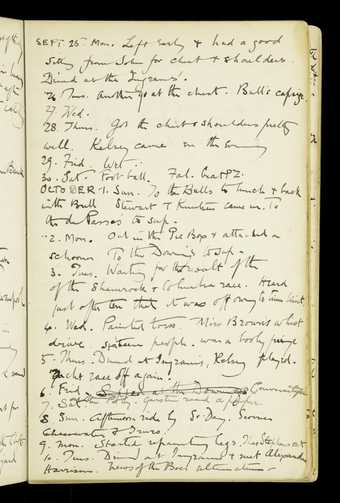 SEPT. 25 Mon. Left early & had a good
Sitting from John for chest & shoulders.
Dined at the Ingrams'.
26 Tues. Another go at the chest. Ball's
27. Wed.
28. Thurs. Got the chest & shoulders pretty
well. Kelsey came in the evening
29. Frid. Wet.
30. Sat. Foot ball.
OCTOBER. 1. Sun. To the Balls to lunch & back
with Bull Stewart & came in. To
the de Passos to sup.
2. Mon. Out in the Pie Box & attached a
schooner To the to sup.
3. Tues. Waiting for the result of the
of the Shamrock & Columbia race. Heard
just after ten that it was off owing to time limit
4. Wed. Painted torso. Miss Brown's whist
drive. people. was a booby prize
5. Thurs. Dined at Ingrams, Kelsey played.
Yacht race off again.
6. Frid. Supper at the
7. Sat.
8. Sun. Afternoon ride by St. Day, Scorrier
Chacewater & Truro.
9. Mon. Started repainting legs.
10. Tues. Dined at Ingrams & met Alexander
Harrison. News of the Boer ultimatum.